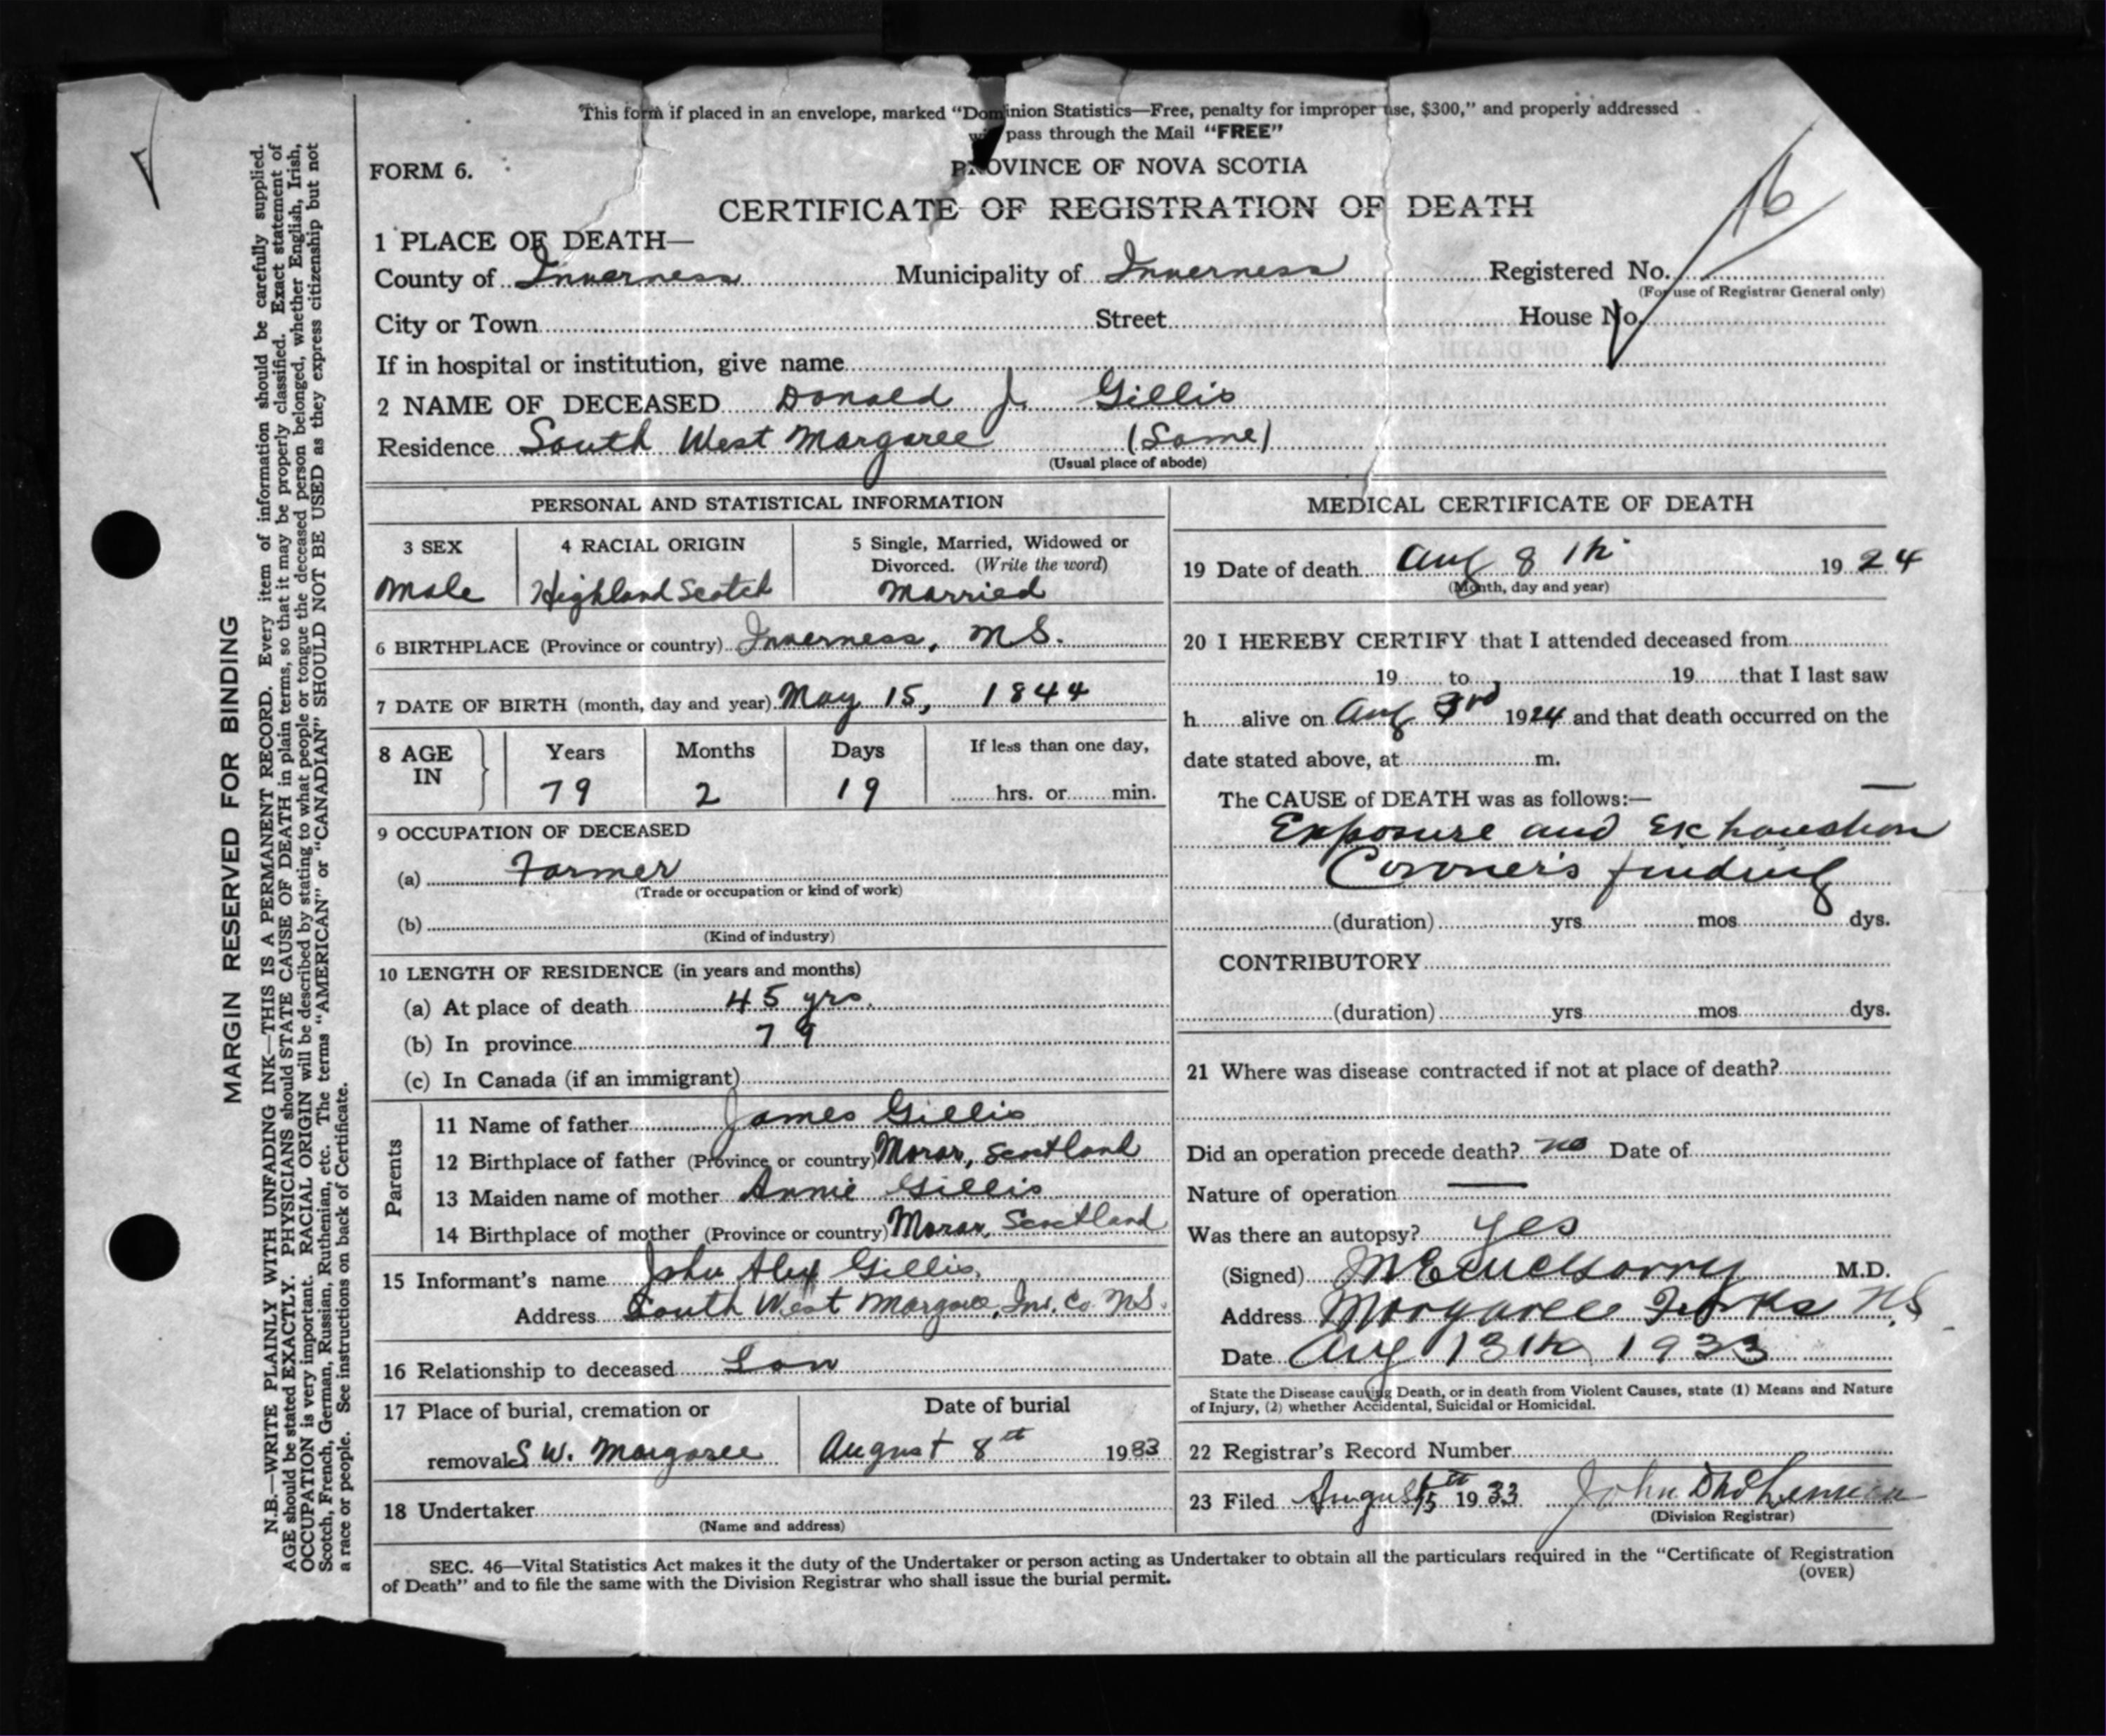 This form if placed in an envelope, marked “Dominion Statistics—Free, penalty for improper use, $300,” and properly addressed
pass through the Mail “FREE”
FORM 6.
PROVINCE OF NOVA SCOTIA
16
CERTIFICATE OF REGISTRATION OF DEATH
1 PLACE OF DEATH—
County of Inverness Municipality of Inverness Registered No.
(For use of Registrar General only)
City or Town Street House No.
If in hospital or institution, give name
2 NAME OF DECEASED Donald J. Gillis
Residence South West Margaree (Same)
(Usual place of abode)
PERSONAL AND STATISTICAL INFORMATION
3 SEX 4 RACIAL ORIGIN 5 Single, Married, Widowed or
Divorced. (Write the word)
Male Highland Scotch Married
6 BIRTHPLACE (Province or country) Inverness, N S.
7 DATE OF BIRTH (month, day and year) May 15, 1844
8 AGE IN Years Months Days If less than one day,
79 2 19 hrs. or min.
9 OCCUPATION OF DECEASED
(a) Farmer
(Trade or occupation or kind of work)
(b)
(Kind of industry)
10 LENGTH OF RESIDENCE (in years and months)
(a) At place of death 45 yrs.
(b) In province 79
(c) In Canada (if an immigrant)
Parents
11 Name of father James Gillis
12 Birthplace of father (Province or country) Morar, Scotland
13 Maiden name of mother Annie Gillis
14 Birthplace of mother (Province or country) Morar, Scotland
15 Informant's name John Alex Gillis,
Address South West Margaree, Inv. Co. N S.
16 Relationship to deceased Son
17 Place of burial, cremation or Date of burial
removal S W. Margaree August 8th 1933
18 Undertaker
(Name and address)
MEDICAL CERTIFICATE OF DEATH
19 Date of death Aug 8th 1924
(Month, day and year)
20 I HEREBY CERTIFY that I attended deceased from
19 to 19 that I last saw
h alive on Aug 3rd 1924 and that death occurred on the
date stated above, at m.
The CAUSE of DEATH was as follows:—
Exposure and Exhaustion
Coroner's finding
(duration) yrs mos dys.
CONTRIBUTORY
(duration) yrs mos dys.
21 Where was disease contracted if not at place of death?
Did an operation precede death? no Date of
Nature of operation —
Was there an autopsy? yes
(Signed) M.D.
Address Margaree Forks N S
Date Aug 13th 1933
State the Disease causing Death, or in death from Violent Causes, state (1) Means and Nature
of Injury, (2) whether Accidental, Suicidal or Homicidal.
22 Registrar's Record Number
23 Filed August 15th 1933 John
(Division Registrar)
SEC. 46—Vital Statistics Act makes it the duty of the Undertaker or person acting as Undertaker to obtain all the particulars required in the “Certificate of Registration
of Death” and to file the same with the Division Registrar who shall issue the burial permit.
(OVER)
MARGIN RESERVED FOR BINDING
N.B.—WRITE PLAINLY WITH UNFADING INK—THIS IS A PERMANENT RECORD. Every item of information should be carefully supplied.
AGE should be stated EXACTLY. PHYSICIANS should STATE CAUSE OF DEATH in plain terms, so that it may be properly classified. Exact statement of
OCCUPATION is very important. RACIAL ORIGIN will be described by stating to what people or tongue the deceased person belonged, whether English, Irish,
Scotch, French, German, Russian, Ruthenian, etc. The terms “AMERICAN” or “CANADIAN” SHOULD NOT BE USED as they express citizenship but not
a race or people. See instructions on back of Certificate.